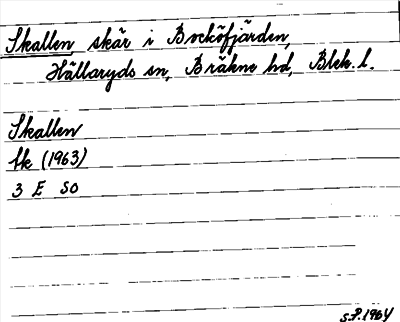 Skallen skär i Bocköfjärden,
Hällaryds sn, Bräkne hd, Blek. l.
Skallen
fk (1963)
3 E SO
S.P. 1964